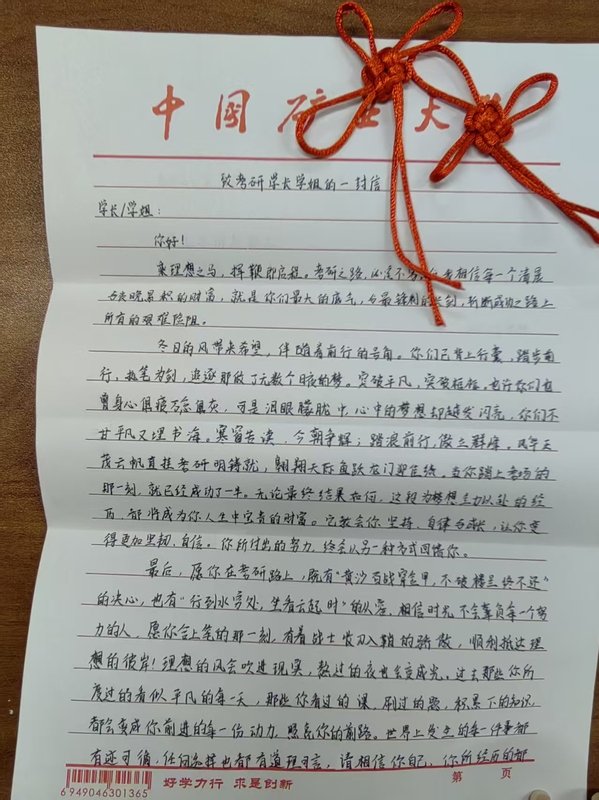 中国矿业大学
致考研学长学姐的一封信
学长/学姐：
你好！
乘理想之马，挥鞭即启程。考研之路，相信每一个清晨
与夜晚累积的财富，就是你们最大的底气，与最锋利的长剑，斩断成功之路上
所有的艰难险阻。
冬日的风带来希望，伴随着前行的号角。你们已背上行囊，踏步前
行，执笔为剑，追逐那做了无数个日夜的梦。突破平凡，突破桎梏。也许你们也
曾身心俱疲万念俱灰，可是泪眼朦胧中，心中的梦想却越发闪亮，你们不
甘平凡又埋书海。寒窗苦读，今朝争辉；踏浪前行，傲立群峰。
云帆直挂考研铸就，翱翔天际鱼跃龙门迎佳绩。当你踏上考场的
那一刻，就已经成功了一半。无论最终结果如何，这段为梦想全力以赴的经
历，都将成为你人生中宝贵的财富。它教会你坚持、自律与成长，让你变
得更加坚韧、自信。你所付出的努力，终会以另一种方式回馈你。
最后，愿你在考研路上，既有“黄沙百战穿金甲，不破楼兰终不还”
的决心，也有“行到水穷处，坐看云起时”的从容。相信时光不会辜负每一个努
力的人，愿你合上笔的那一刻，有着战士收刀入鞘的骄傲，顺利抵达理
想的彼岸！理想的风会吹进现实，熬过的夜也会变成光。过去那些你所
度过的看似平凡的每一天，那些你看过的课、刷过的题，积累下的知识，
都会变成你前进的每一份动力，照亮你的前路。世界上发生的每一件事都
有迹可循，任何怎样也都有道理可言，请相信你自己，你所经历的都
6949046301365
好学力行 求是创新
第 页